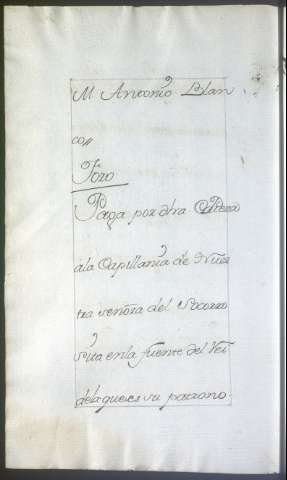 M Antonio Blan
co//
Foro
Paga por otra
ála Capillania de Nues
tra señora del Socorro
Sita enla fuente del Vei
dela quees su patrono